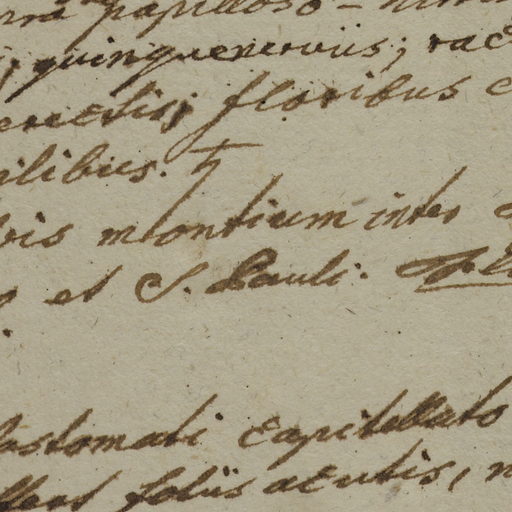 papilloso-
quinquenerviis; rac
erectis; floribus
ilibus. ♄
montium inter
et S. Pauli.
lastomati capitellato
foliis acutis,